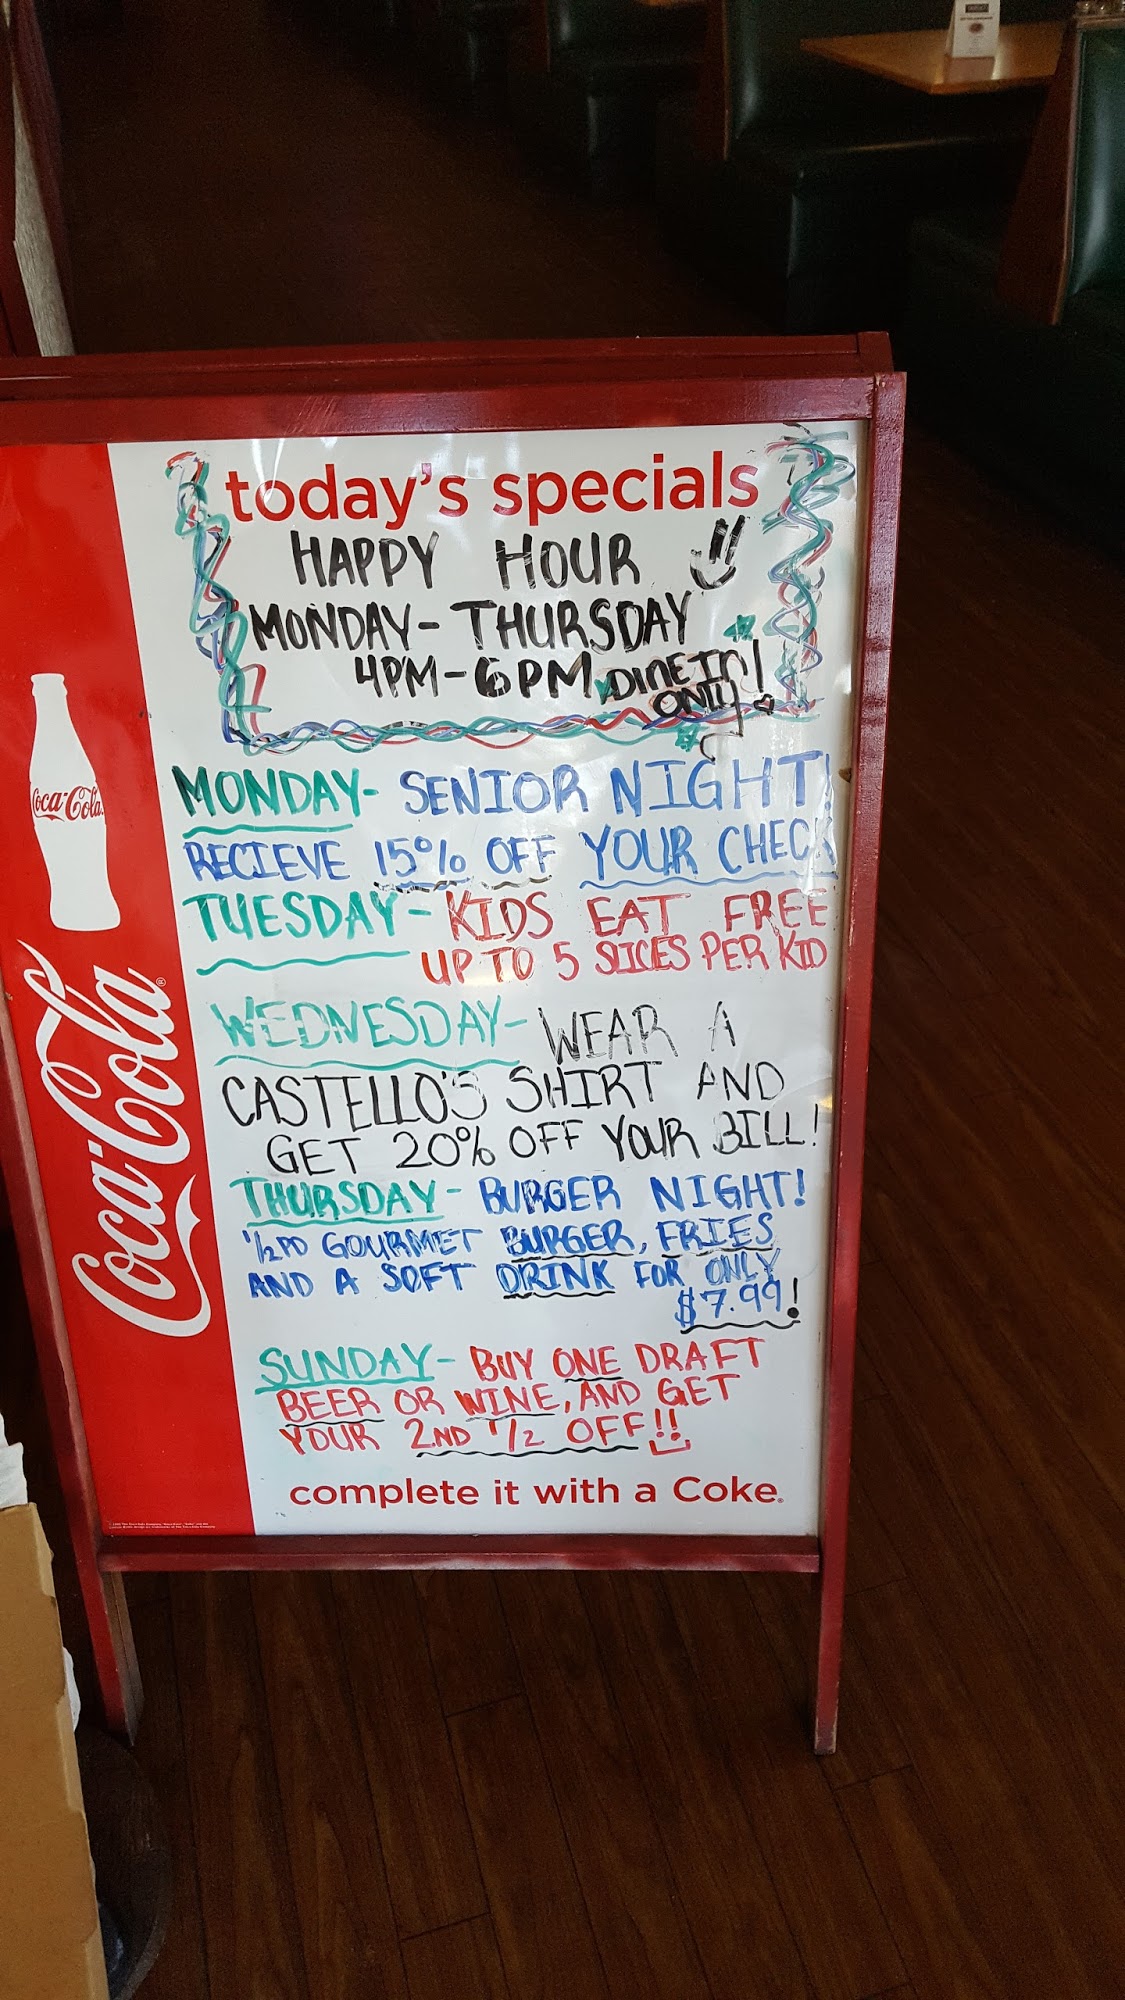 today's specials
HAPPY HOUR
MONDAY- THURSDAY
4PM-6PM DINE IN!
ONLY
MONDAY- SENIOR NIGHT!
RECIEVE 15% OFF YOUR CHECK
TUESDAY- KIDS EAT FREE
UP TO 5 SLICES PER KID
WEDNESDAY- WEAR A
CASTELLO'S SHIRT AND
GET 20% OFF YOUR BILL!
THURSDAY- BURGER NIGHT!
1/2 PD GOURMET BURGER, FRIES
AND A SOFT DRINK FOR ONLY
$7.99!
SUNDAY- BUY ONE DRAFT
BEER OR WINE, AND GET
YOUR 2ND 1/2 OFF!!
complete it with a Coke.
Coca-Cola
Coca-Cola®